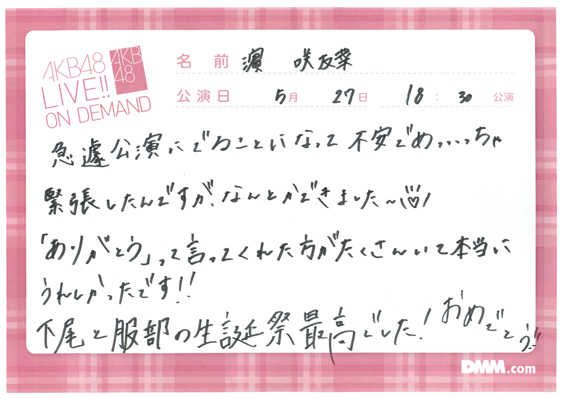 AKB48
LIVE!!
ON DEMAND
AKB
48
名前 濵 咲友菜
公演日 5月 27日 18:30 公演
急遽公演にでることになって不安でめっっっちゃ
緊張したんですが、なんとかできました〜♡!
「ありがとう」って言ってくれた方がたくさんいて本当に
うれしかったです!!
下尾と服部の生誕祭最高でした! おめでとう
DMM.com